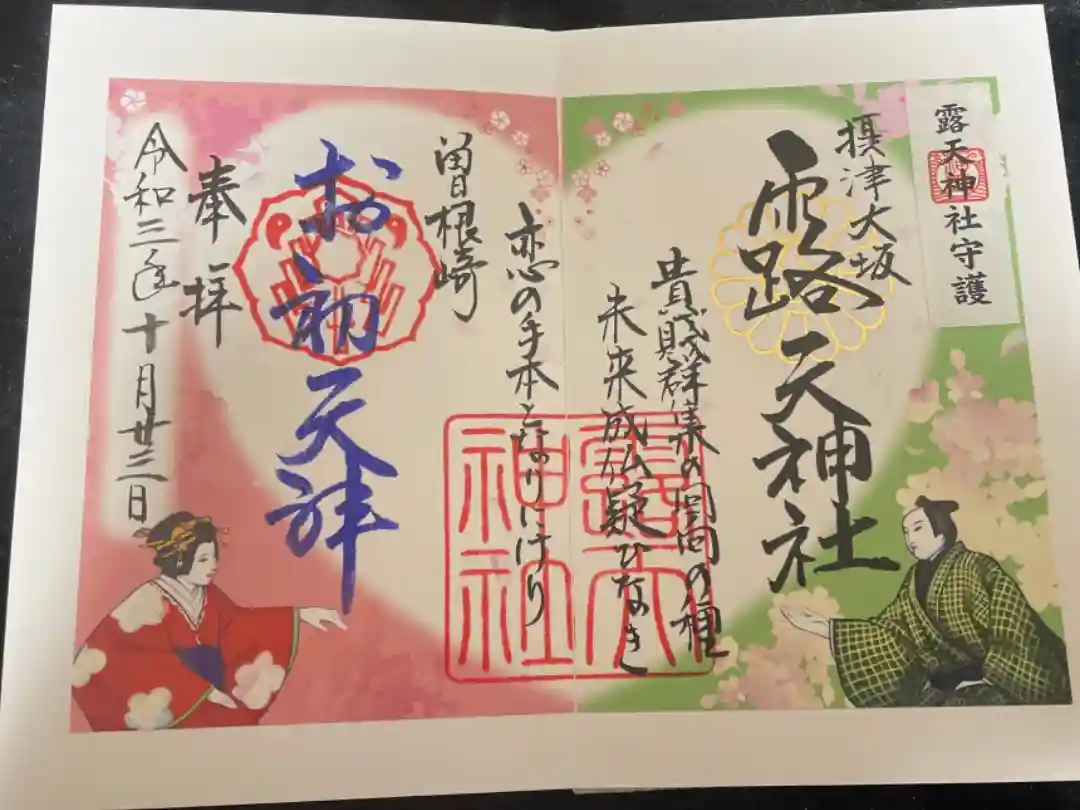 露天神社守護
摂津大坂
露天神社
貴賎群集の回向の種
未来成仏疑ひなき
恋の手本となりにけり
曽根崎
お初天神
奉拝
令和三年十月廿三日
露天
神社